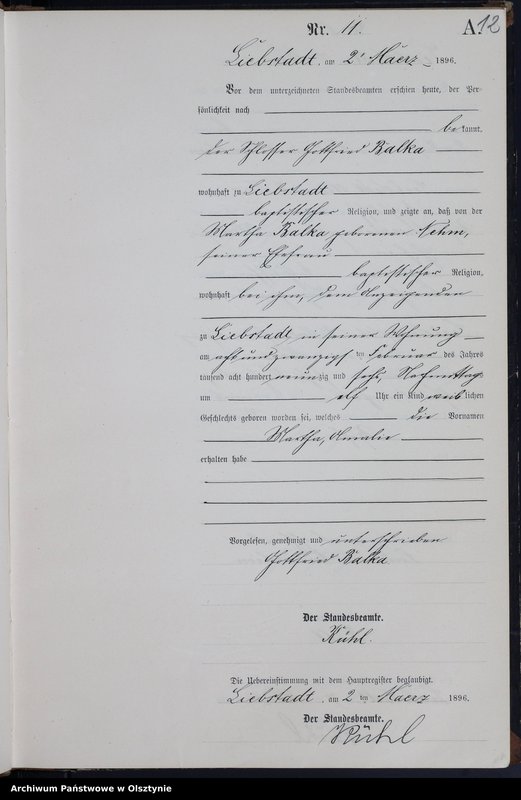 Nr. 11.
A. 12
Liebstadt, am 2ⁿ Maerz 1896.
Vor dem unterzeichneten Standesbeamten erschien heute, der Per-
sönlichkeit nach
bekannt,
der Schlosser Gottfried Balka
wohnhaft zu Liebstadt
baptistischer Religion, und zeigte an, daß von der
Martha Balka geborenen
seiner Ehefrau
baptistischer Religion,
wohnhaft bei ihm, dem Anzeigenden
zu Liebstadt in seiner Wohnung
am achtundzwanzigsten Februar des Jahres
tausend acht hundert neunzig und sechs, Nachmittags
um elf Uhr ein Kind weiblichen
Geschlechts geboren worden sei, welches die Vornamen
Martha, Amalie
erhalten habe
Vorgelesen, genehmigt und unterschrieben
Gottfried Balka
Der Standesbeamte.
Kühl.
Die Uebereinstimmung mit dem Hauptregister beglaubigt.
Liebstadt, am 2 ten Maerz 1896.
Der Standesbeamte.
Kühl
Archiwum Państwowe w Olsztynie